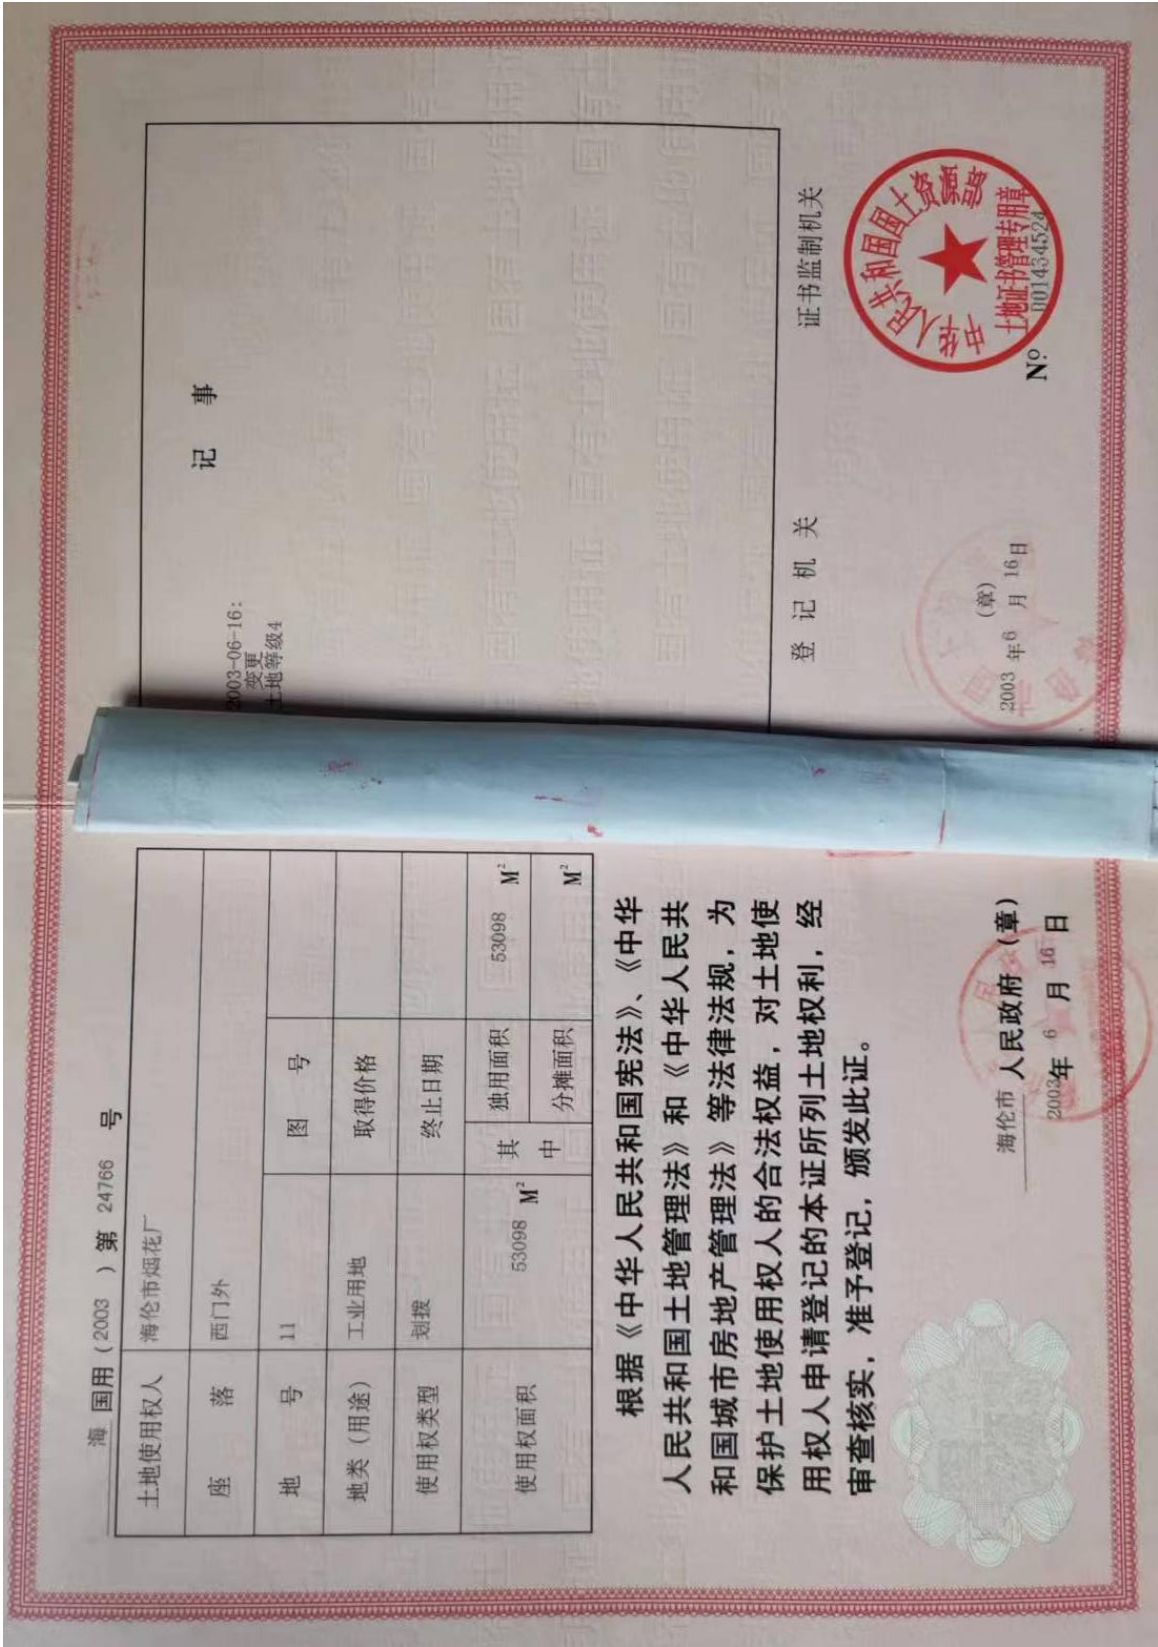 海 国用 (2003 ) 第 24766 号
土地使用权人 海伦市烟花厂
座 落 西门外
地 号 11 图 号
地类（用途） 工业用地 取得价格
使用权类型 划拨 终止日期
使用权面积 53098 M² 其中 独用面积 53098 M²
分摊面积 M²
根据《中华人民共和国宪法》、《中华
人民共和国土地管理法》和《中华人民共
和国城市房地产管理法》等法律法规，为
保护土地使用权人的合法权益，对土地使
用权人申请登记的本证所列土地权利，经
审查核实，准予登记，颁发此证。
海伦市 人民政府 (章)
2003年 6 月 16 日
记 事
2003-06-16:
变更
土地等级4
登 记 机 关
(章)
2003 年 6 月 16 日
证书监制机关
中华人民共和国国土资源部
土地证书管理专用章
Nº 001434524